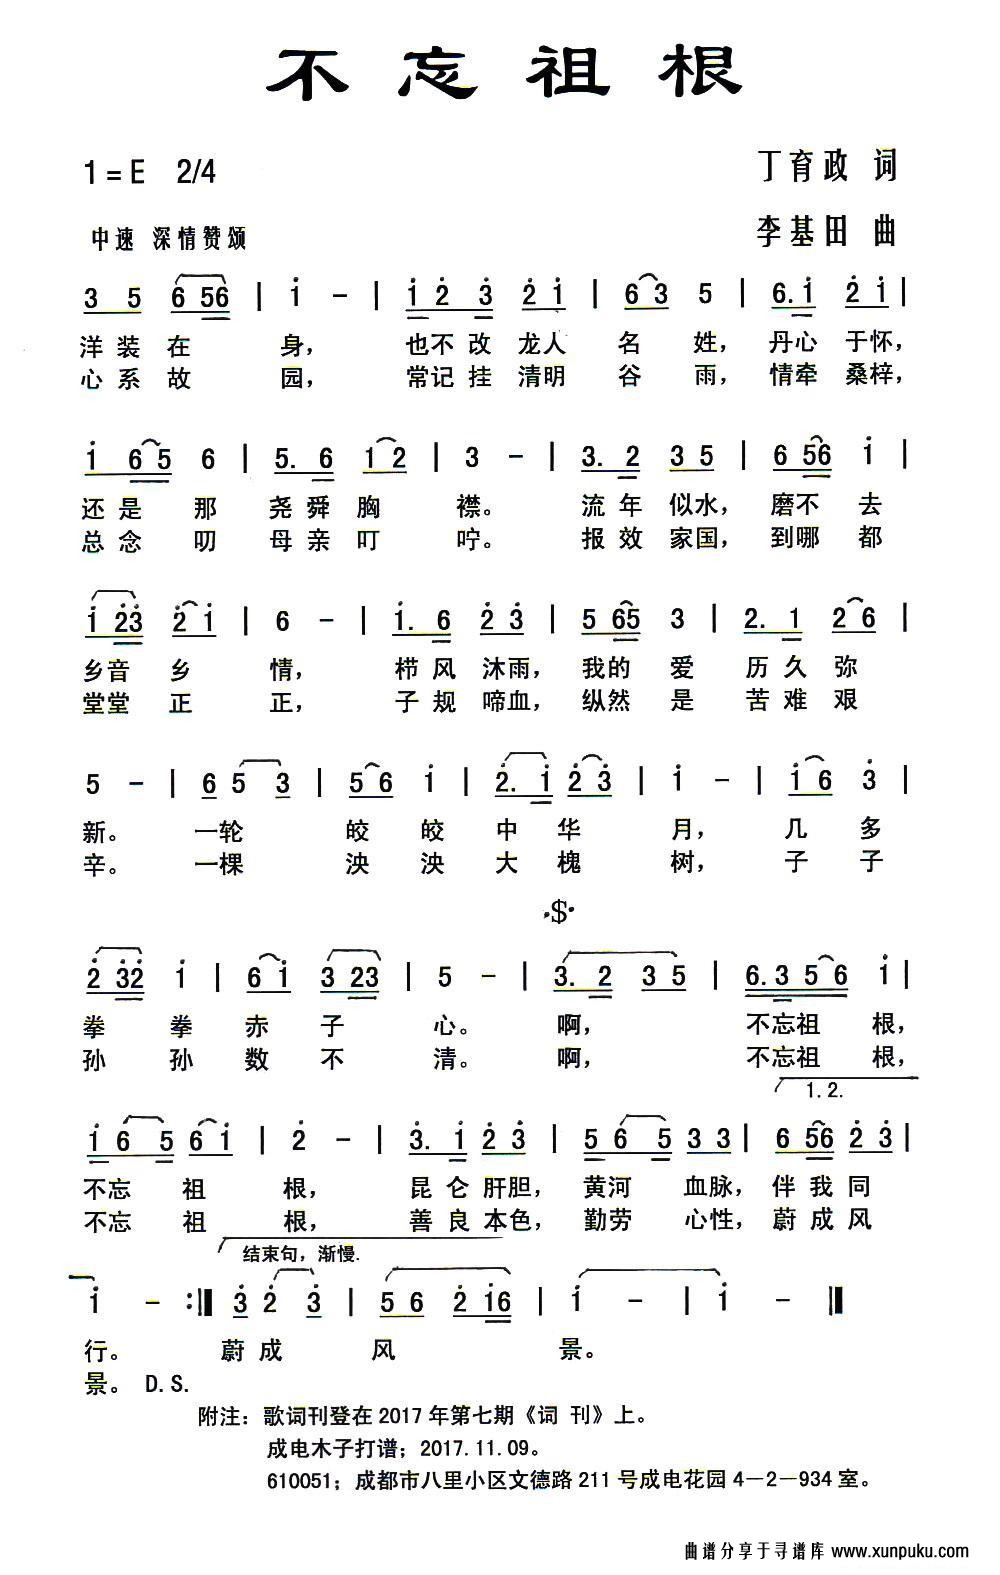 不忘祖根
1=E 2/4
丁育政 词
中速 深情赞颂
李基田 曲
3 5 6 56 | i - | i 2 3 2 i | 6 3 5 | 6. i 2 i |
洋装在身，也不改龙人名姓，丹心于怀，
心系故园，常记挂清明谷雨，情牵桑梓，
i 6 5 6 | 5. 6 1 2 | 3 - | 3. 2 3 5 | 6 56 i |
还是那尧舜胸襟。流年似水，磨不去
总念叨母亲叮咛。报效家国，到哪都
i 23 2 i | 6 - | i. 6 2 3 | 5 65 3 | 2. 1 2 6 |
乡音乡情，栉风沐雨，我的爱历久弥
堂堂正正，子规啼血，纵然是苦难艰
5 - | 6 5 3 | 5 6 i | 2. i 2 3 | i - | i 6 3 |
新。一轮皎皎中华月，几多
辛。一棵泱泱大槐树，子子
·$·
2 32 i | 6 i 3 23 | 5 - | 3. 2 3 5 | 6.3 5 6 i |
拳拳赤子心。啊，不忘祖根，
孙孙数不清。啊，不忘祖根，
1.2.
i 6 5 6 i | 2 - | 3. i 2 3 | 5 6 5 3 3 | 6 56 2 3 |
不忘祖根，昆仑肝胆，黄河血脉，伴我同
不忘祖根，善良本色，勤劳心性，蔚成风
结束句，渐慢.
i - :‖ 3 2 3 | 5 6 2 i6 | i - | i - ‖
行。蔚成风景。
景。D.S.
附注：歌词刊登在2017年第七期《词 刊》上。
成电木子打谱；2017.11.09。
610051；成都市八里小区文德路211号成电花园4－2－934室。
曲谱分享于寻谱库 www.xunpuku.com